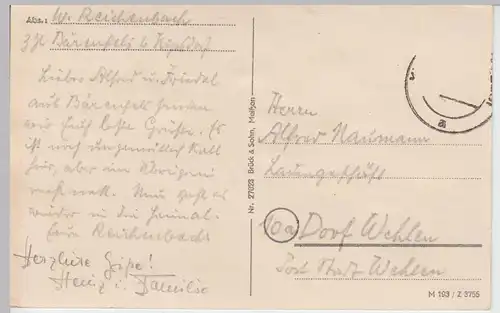 Abs.: W. Reichenbach
z. Zt. Bärenfels b. Kipsdorf
Lieber Alfred u. Friedel
aus Bärenfels senden
wir Euch beste Grüße. Es
ist noch ungemütlich kalt
hier, aber im Übrigen
recht nett. Nun geht es
wieder in die Heimat.
Eure Reichenbachs
Herzliche Grüße!
Heinz u. Familie
Nr. 27023 Brück & Sohn, Meißen
Herrn
Alfred Naumann
10a Dorf Wehlen
Post Stadt Wehlen
M 193 / Z 3755